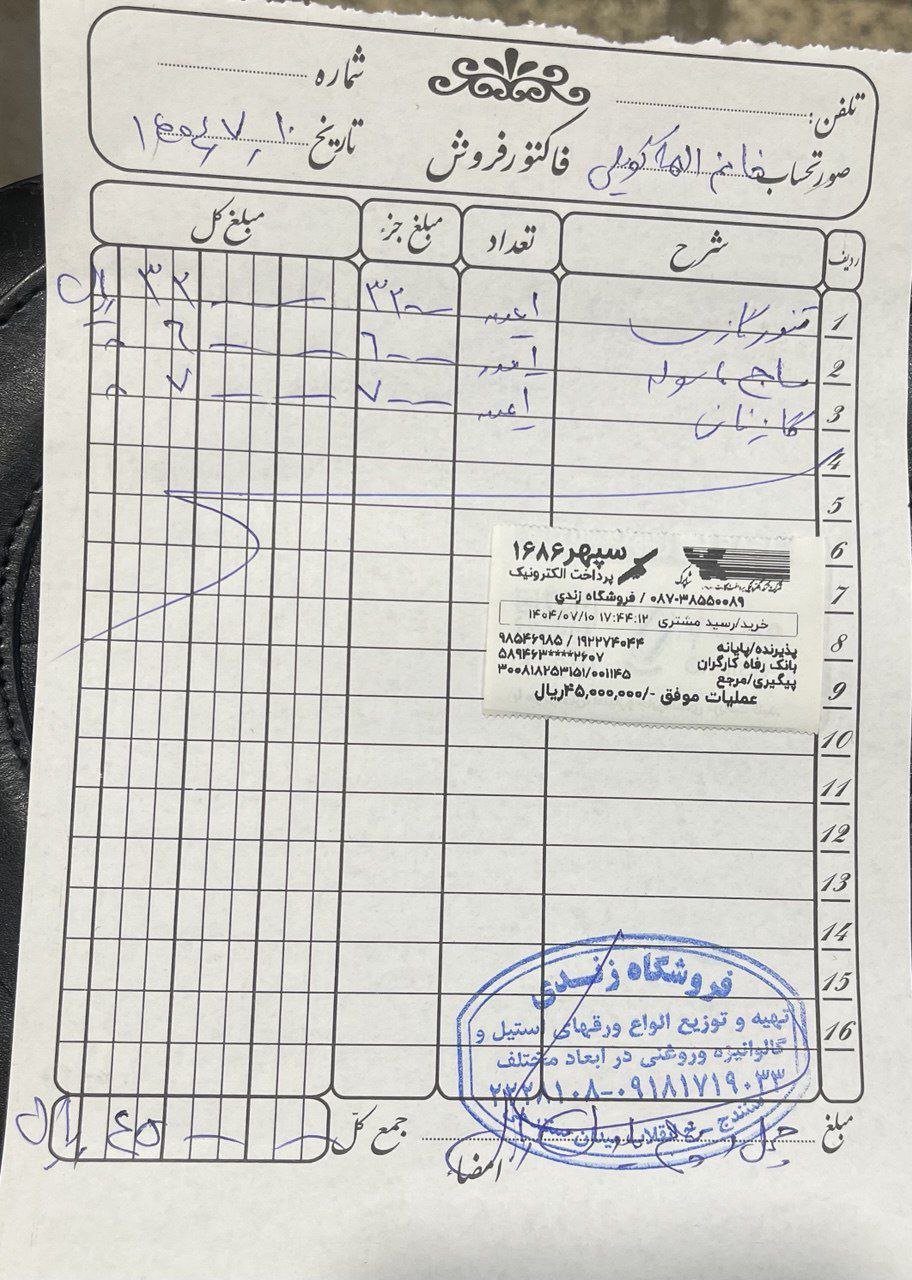 تلفن: شماره
صورتحساب خانم الهه فاکتور فروش تاریخ ۱۴۰۴٫۷٫۱۰
ردیف شرح تعداد مبلغ جزء مبلغ کل
1 تنور گازی ۱عدد ۳۲ــ ۳۲ــ ــ ریال
2 ساج ماسوله ۱عدد ٦ــ ــ ٦ــ ــ
3 ۱عدد ۷ــ ــ ۷ــ ــ
4
5
6
7
8
9
10
11
12
13
14
15
16
سپهر۱۶۸۶
پرداخت الکترونیک
۰۸۷-۳۸۵۵۰۰۸۹ / فروشگاه زندی
خرید/رسید مشتری ۱۷:۴۴:۱۲ ۱۴۰۴/۰۷/۱۰
پذیرنده/پایانه ۱۹۲۲۷۴۰۴۴ / ۹۸۵۴۶۹۸۵
بانک رفاه کارگران ۵۸۹۴۶۳****۲۶۰۷
پیگیری/مرجع ۳۰۰۸۱۸۲۵۳۱۵۱/۰۰۱۱۴۵
عملیات موفق -/۴۵,۰۰۰,۰۰۰ریال
فروشگاه زندی
تهیه و توزیع انواع ورقهای استیل و
گالوانیزه وروغنی در ابعاد مختلف
۲۲۲۸۱۰۸-۰۹۱۸۱۷۱۹۰۳۳
سنندج انقلاب میدان
مبلغ جمع کل ٤٥ــ ــ ریال
امضاء